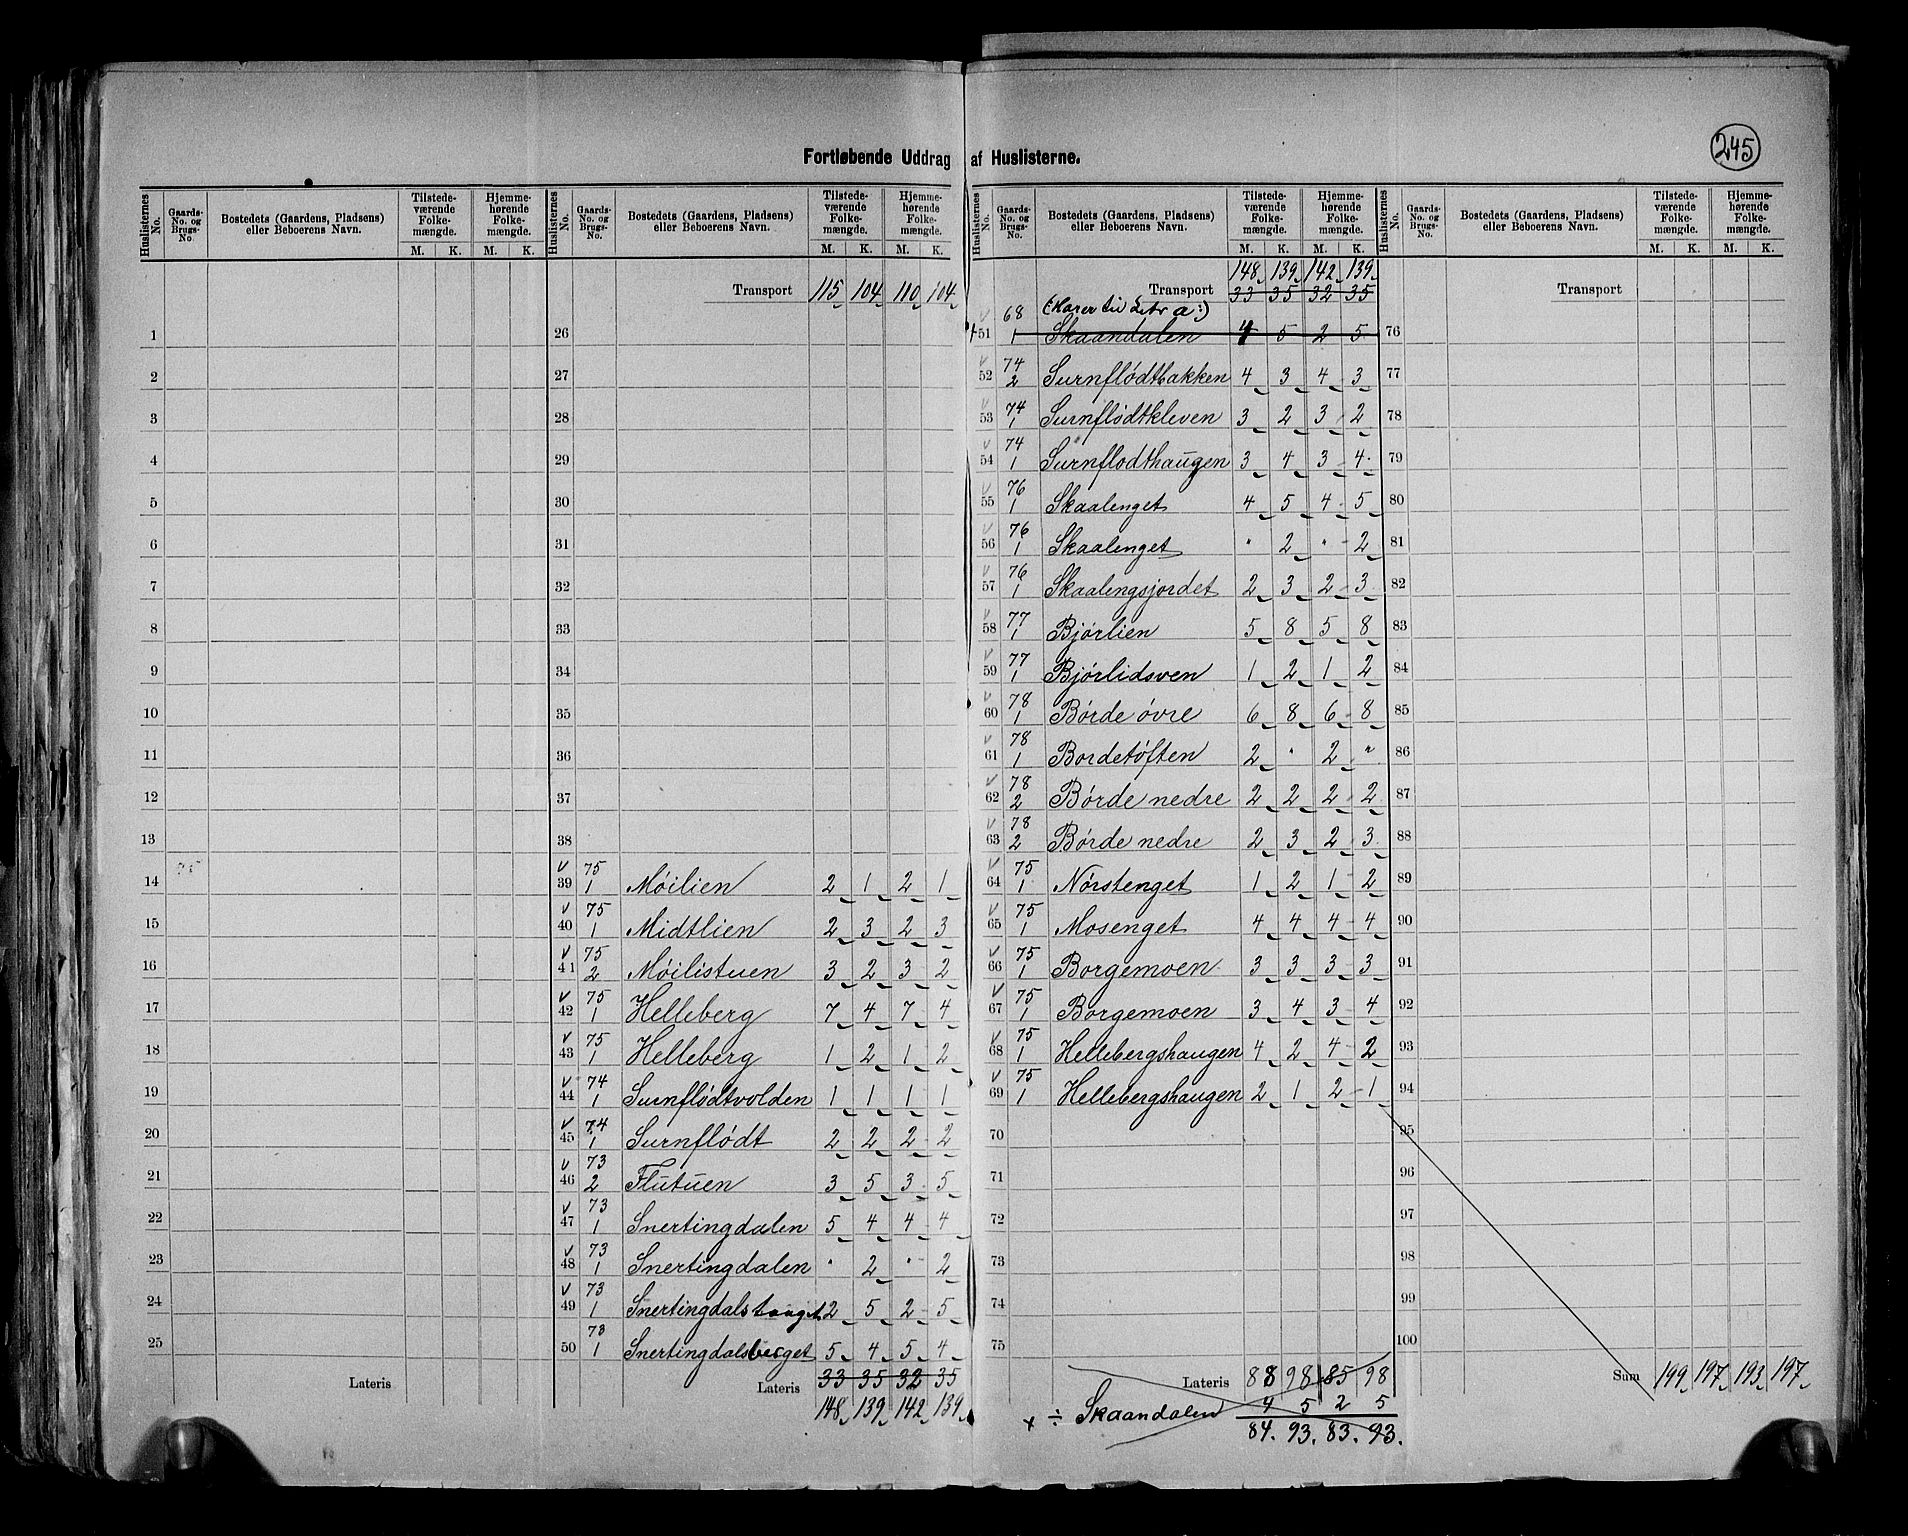 245
Fortløbende Uddrag af Huslisterne.
Huslisternes No. Gaards-No. og Brugs-No. Bostedets (Gaardens, Pladsens) eller Beboerens Navn. Tilstedeværende Folkemængde. M. K. Hjemmehørende Folkemængde. M. K.
Huslisternes No. Gaards-No. og Brugs-No. Bostedets (Gaardens, Pladsens) eller Beboerens Navn. Tilstedeværende Folkemængde. M. K. Hjemmehørende Folkemængde. M. K.
1
2
3
4
5
6
7
8
9
10
11
12
13
14
15
16
17
18
19
20
21
22
23
24
25
Lateris
Transport 115 104 110 104
26
27
28
29
30
31
32
33
34
35
36
37
38
39 75 1 Møilien 2 1 2 1
40 75 1 Midtlien 2 3 2 3
41 75 2 Møilistuen 3 2 3 2
42 75 1 Helleberg 7 4 7 4
43 75 1 Helleberg 1 2 1 2
44 74 1 Surnflødtvolden 1 1 1 1
45 74 1 Surnflødt 2 2 2 2
46 73 2 Flutuen 3 5 3 5
47 73 1 Snertingdalen 5 4 4 4
48 73 1 Snertingdalen " 2 " 2
49 73 1 Snertingdals 2 5 2 5
50 73 1 Snertingdalsberget 5 4 5 4
Lateris 33 35 32 35
148 139 142 139
Huslisternes No. Gaards-No. og Brugs-No. Bostedets (Gaardens, Pladsens) eller Beboerens Navn. Tilstedeværende Folkemængde. M. K. Hjemmehørende Folkemængde. M. K.
148 139 142 139
Transport 33 35 32 35
(Hører til Litr a:)
51 68 1 Skaandalen 4 5 2 5
52 74 2 Surnflødtbakken 4 3 4 3
53 74 1 Surnflødtkleven 3 2 3 2
54 74 1 Surnflodthaugen 3 4 3 4
55 76 1 Skaalenget 4 5 4 5
56 76 1 Skaalenget " 2 " 2
57 76 1 Skaalengsjordet 2 3 2 3
58 77 1 Bjørlien 5 8 5 8
59 77 1 Bjørlidsven 1 2 1 2
60 78 1 Børde øvre 6 8 6 8
61 78 1 Bordetøften 2 " 2 "
62 78 2 Børde nedre 2 2 2 2
63 78 2 Børde nedre 2 3 2 3
64 75 1 Nørstenget 1 2 1 2
65 75 1 Mosenget 4 4 4 4
66 75 1 Borgemoen 3 3 3 3
67 75 1 Borgemoen 3 4 3 4
68 75 1 Hellebergshaugen 4 2 4 2
69 75 1 Hellebergshaugen 2 1 2 1
70
71
72
73
74
75
Lateris 88 98 85 98
÷ Skaandalen 4 5 2 5
84. 93. 83. 93.
Huslisternes No. Gaards-No. og Brugs-No. Bostedets (Gaardens, Pladsens) eller Beboerens Navn. Tilstedeværende Folkemængde. M. K. Hjemmehørende Folkemængde. M. K.
Transport
76
77
78
79
80
81
82
83
84
85
86
87
88
89
90
91
92
93
94
95
96
97
98
99
100
Sum 199 197 193 197